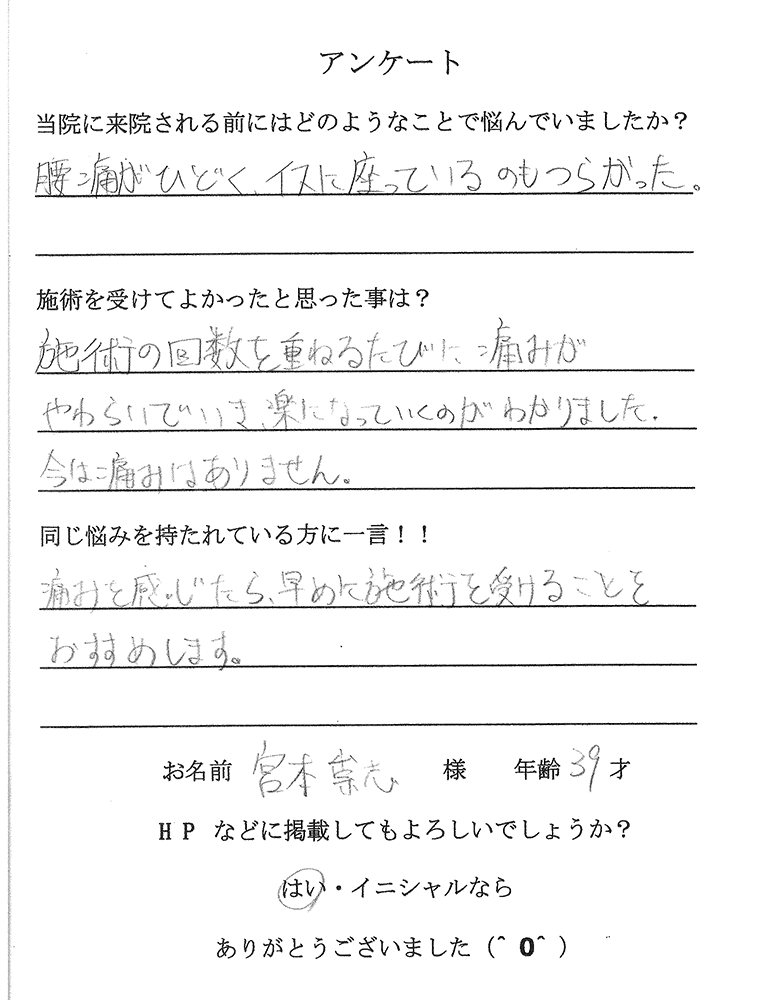 アンケート
当院に来院される前にはどのようなことで悩んでいましたか？
腰痛がひどく、イスに座っているのもつらかった。
施術を受けてよかったと思った事は？
施術の回数を重ねるたびに、痛みが
やわらいでいき、楽になっていくのがわかりました.
今は痛みはありません。
同じ悩みを持たれている方に一言！！
痛みを感じたら、早めに施術を受けることを
おすすめします。
お名前 宮本 志 様 年齢 39 才
ＨＰ などに掲載してもよろしいでしょうか？
はい・イニシャルなら
ありがとうございました（＾０＾）